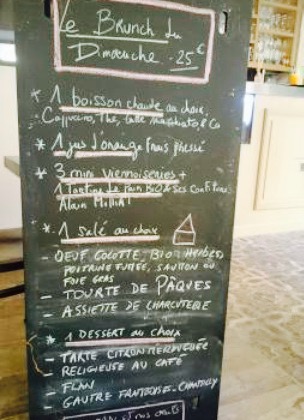 Le Brunch du
Dimanche. 25€
* 1 boisson chaude au choix,
Cappuccino, Thé, latte macchiato & Co
* 1 jus d'orange frais pressé
* 3 mini viennoiseries +
1 Tartine Le Pain BIO & ses confitures
Alain Milliat
* 1 salé au choix
- OEUF COCOTTE BIO HERBES,
POITRINE FUMÉE, SAUMON OU
FOIE GRAS
- TOURTE DE PÂQUES
- ASSIETTE DE CHARCUTERIE
* 1 DESSERT au choix
- TARTE CITRON MERINGUÉE
- RELIGIEUSE AU CAFÉ
- FLAN
- GAUFRE FRAMBOISE-CHANTILLY